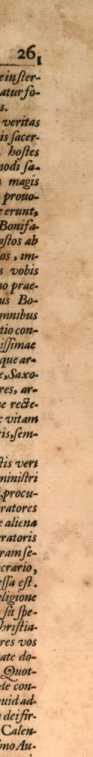 261
einster-
atur fo-
s.
veritas
is sacer-
hostes
nodi sa-
magis
prouo-
e erunt,
Bonifa-
ustos ab
os, im-
s vobis
no prae-
us Bo-
mnibus
tio con-
issimae
que ar-
e, Saxo-
res, ar-
e recte-
e vitam
ris, sem-
tis veri
ministri
, procu-
ratores
e aliena
ratoris
ram se-
crario,
essa est.
eligione
sit spe-
hristia-
res vos
ate do-
Quot-
le con-
uid ad-
dei fir-
Calen-
imo Au-